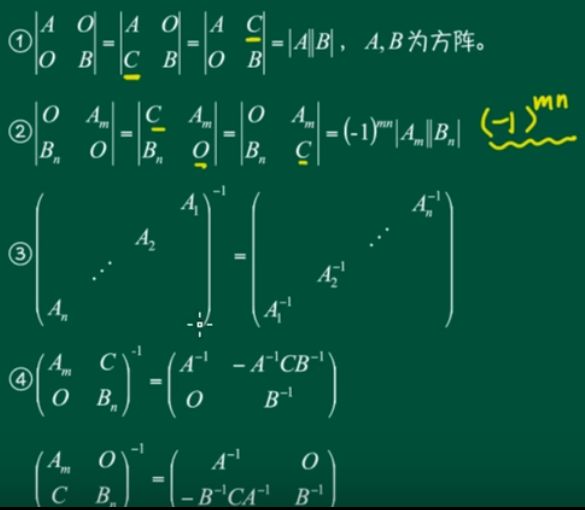 ① |A O; O B| = |A O; C B| = |A C; O B| = |A||B|, A,B为方阵。
② |O Aₘ; Bₙ O| = |C Aₘ; Bₙ O| = |O Aₘ; Bₙ C| = (-1)^{mn}|Aₘ||Bₙ| (-1)^{mn}
③ ( A₁; A₂; ⋰; Aₙ )⁻¹ = ( Aₙ⁻¹; ⋰; A₂⁻¹; A₁⁻¹ )
④ (Aₘ C; O Bₙ)⁻¹ = (A⁻¹ -A⁻¹CB⁻¹; O B⁻¹)
(Aₘ O; C Bₙ)⁻¹ = (A⁻¹ O; -B⁻¹CA⁻¹ B⁻¹)